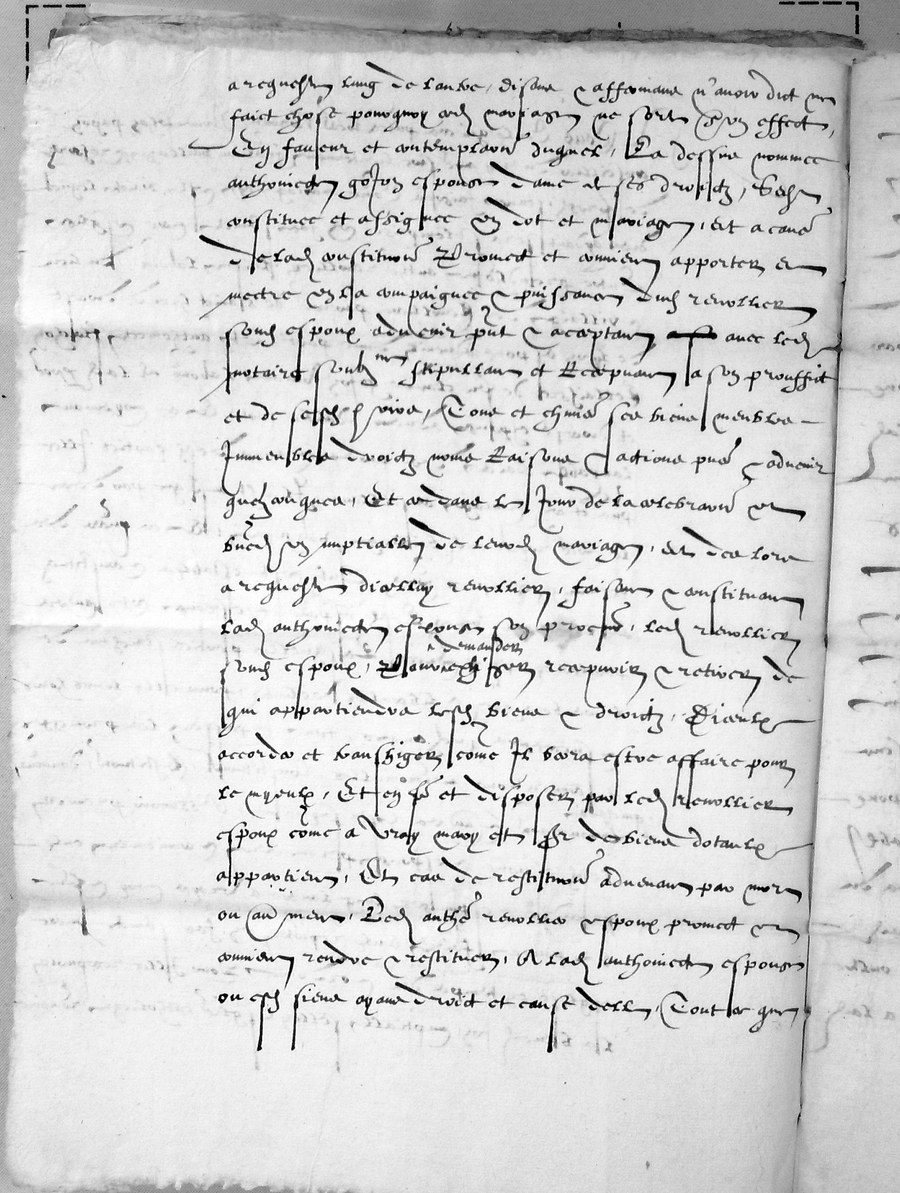 a requeste lung de laultre, disans & affermans n'avoir dict ne
faict chose pourquoy ced mariage ne sorte son effect,
En faveur et contemplaon duquel, La dessus nommee
anthoinette espouse dame de ses droictz, sest
constituee et assignee en dot et mariage, et a cause
de lad constituon Promect et convient apporter et
mectre en la compaignee & puissance dud revollier
sond espoux advenir pnt & acceptant avec led
notaire soubz stipullant et Recepvant a son prouffict
et de sesd, Tous et chuns ses biens meubles
Immeubles droictz noms Raisons & actions pns & advenir
quelzconques, Et ce dans le Jour de la celebraon et
bnedon nuptialle de leurd mariage, et des lors
a requeste dicelluy revollier, faisant & constituant
lad anthoinette espouse son procur, led revollier
sond espoux, demander recepvoir & retirer de
qui appartiendra lesd biens & droictz, Diceulx
accorder et transhiger come Il verra estre affaire pour
le myeulx, Et en fe et disposer par led revollier
espoux come a vray mary et sr de biens dotaulx
appartient, Et cas de restituon advenant par mort
ou aultrement, Led anthe revollier espoux promect et
convient rendre & restituer, A lad anthoinette espouse
ou esd siens ayans droict et cause delle, Tout ce que